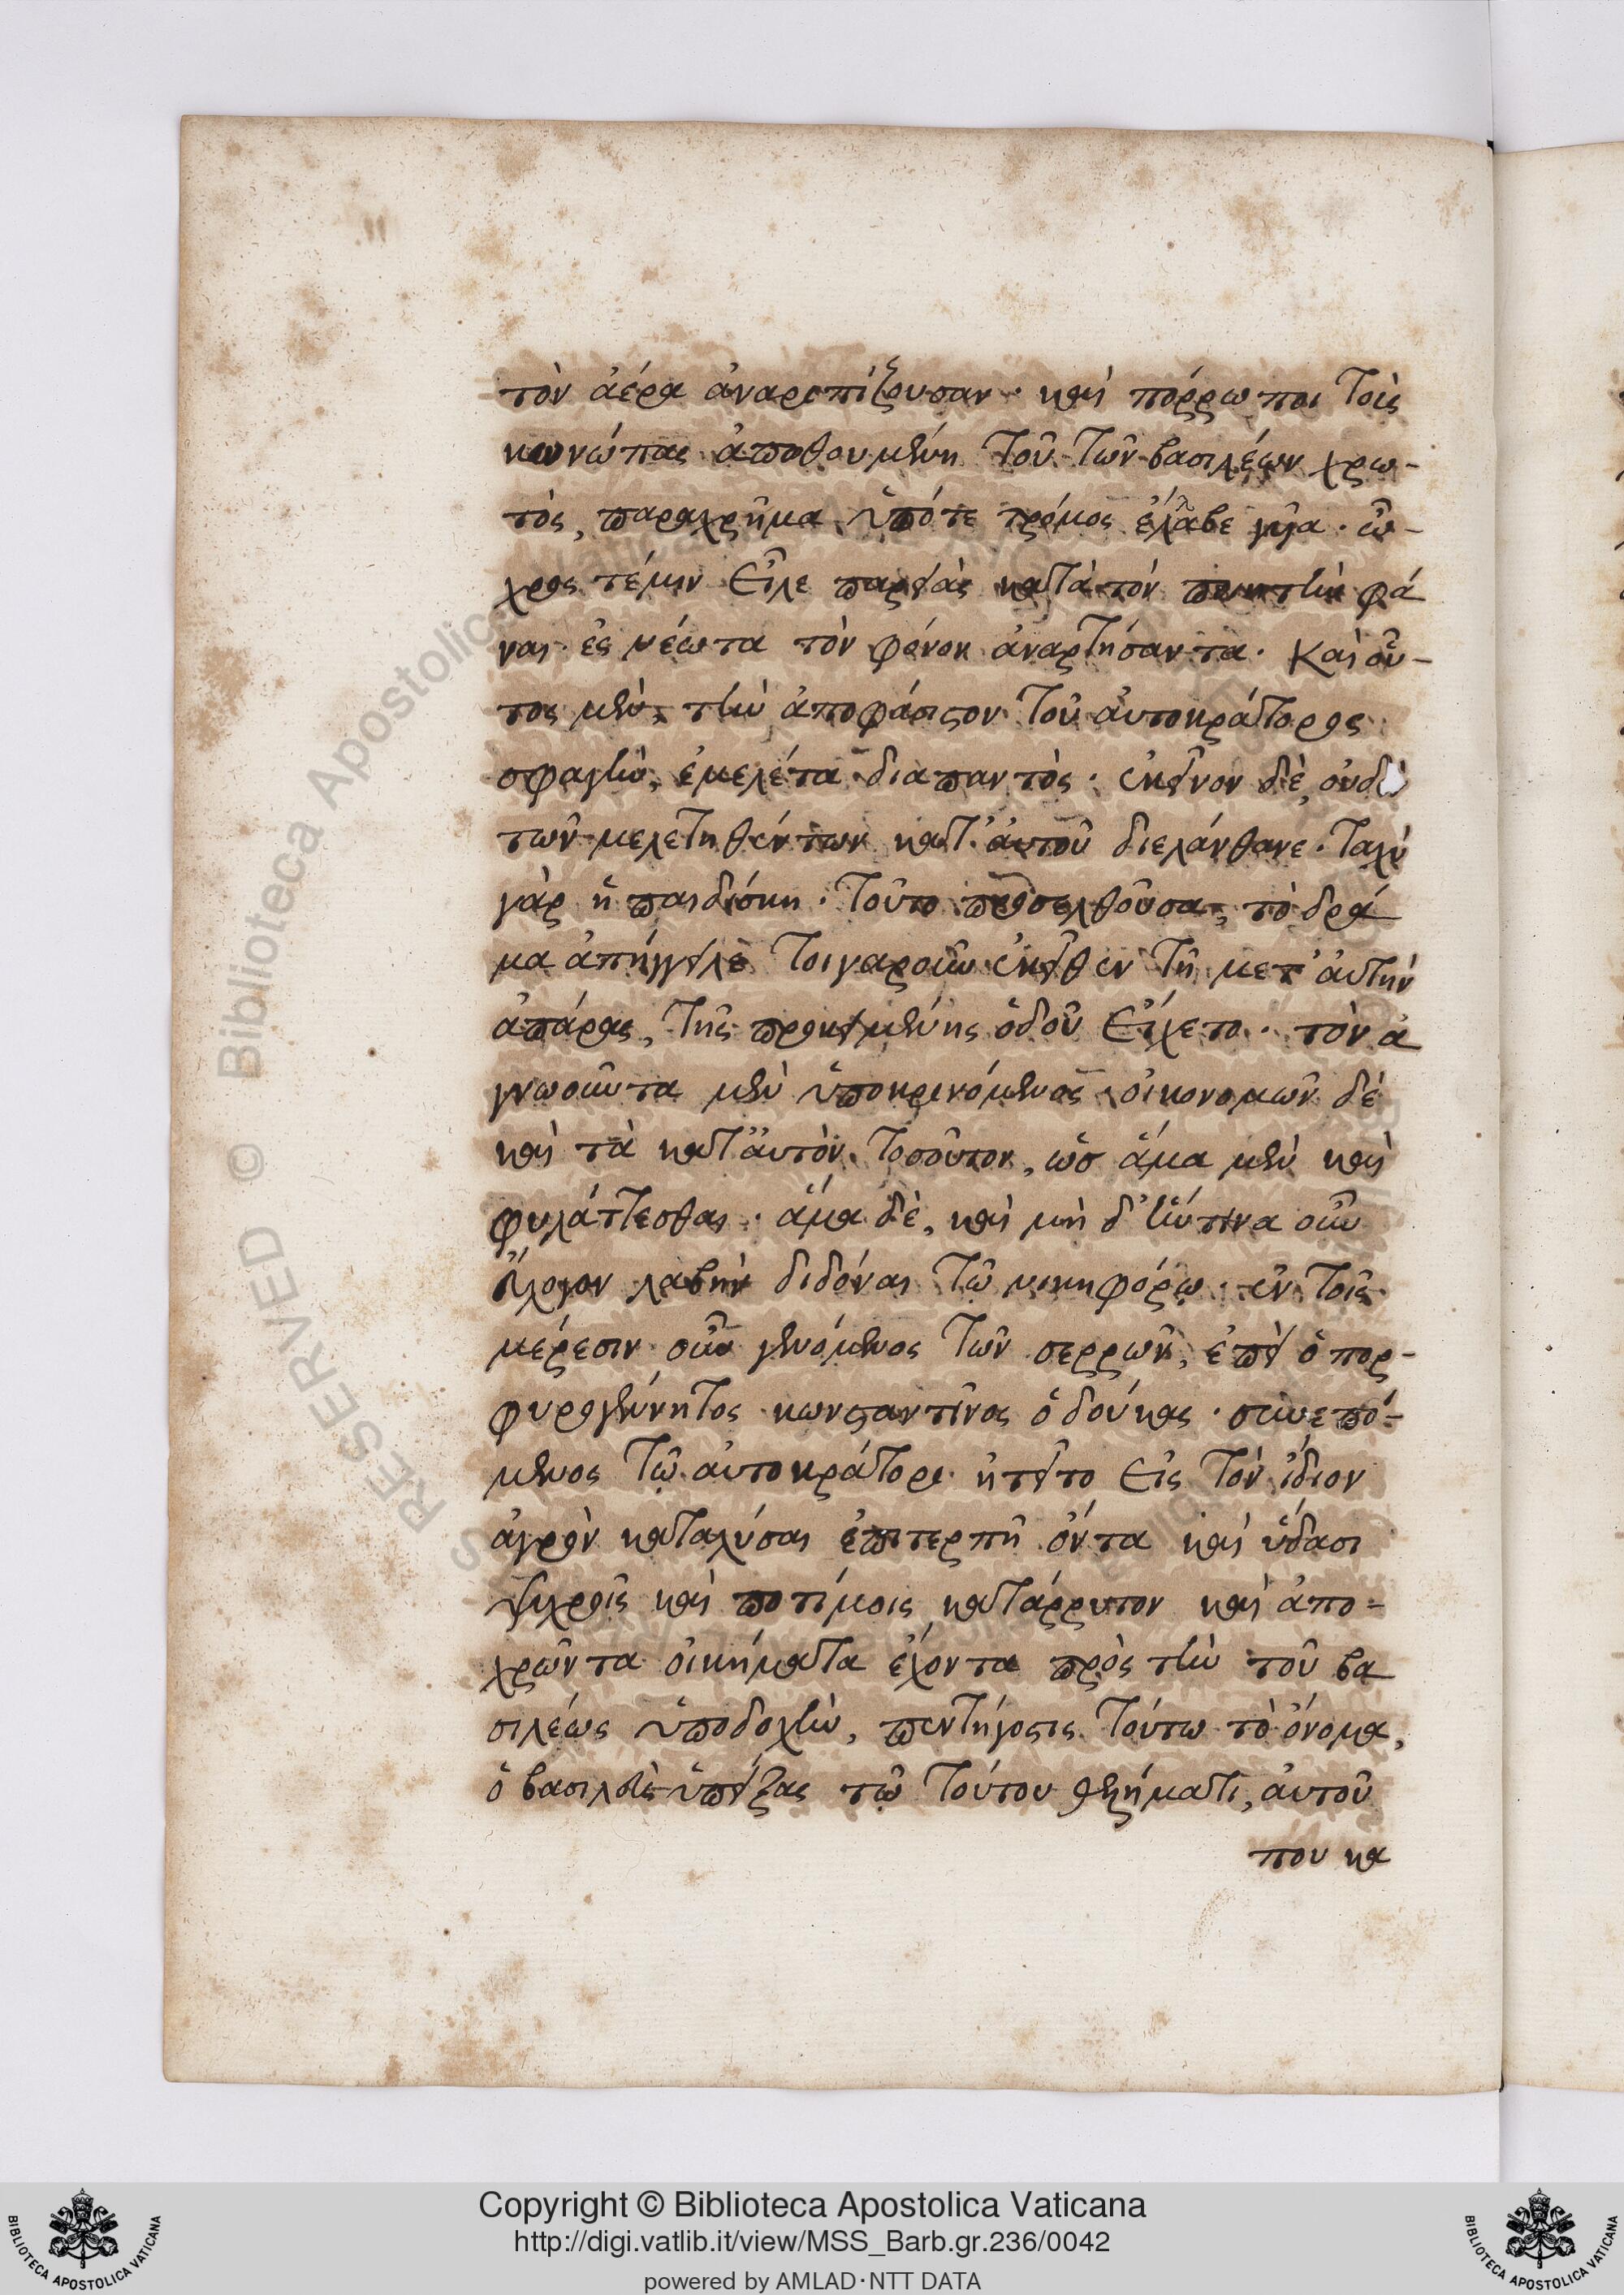 τὸν ἀέρα ἀναριπίζουσαν· καὶ πόρρω ποι τοὺς
κωνώπας ἀποθουμένη τοῦ τῶν βασιλέων χρω-
τὸς, παραχρῆμα ὑπό τε τρόμος ἔλαβε γυῖα· ὦ-
χρος τέ μιν εἷλε παρειὰς κατὰ τὸν ποιητὴν φά
ναι· ἐς νέωτα τὸν φόνον ἀναρτήσαντα. Καὶ οὗ-
τος μὲν, τὴν ἀποφάσιστον τοῦ αὐτοκράτορος
σφαγὴν, ἐμελέτα διαπαντὸς. ἐκεῖνον δὲ, οὐδὲν
τῶν μελετηθέντων κατ' αὐτοῦ διελάνθανε. ταχὺ
γὰρ ἡ παιδίσκη· τούτω προσελθοῦσα, τὸ δρᾶ
μα ἀπήγγειλε τοιγαροῦν ἐκεῖθεν τῇ μετ' αὐτὴν
ἀπάρας, τῆς προκειμένης ὁδοῦ εἴχετο. τὸν ἀ
γνωοῦντα μὲν ὑποκρινόμενος· οἰκονομῶν δὲ
καὶ τὰ κατ' αὐτὸν τοσοῦτον, ὡς ἅμα μὲν καὶ
φυλάττεσθαι· ἅμα δὲ, καὶ μὴ δ' ἥντινα οὖν
εὔλογον λαβὴν διδόναι τῷ νικηφόρῳ. ἐν τοῖς
μέρεσιν οὖν γενόμενος τῶν σερρῶν, ἐπεὶ ὁ πορ-
φυρογέννητος κωνσταντῖνος ὁ δούκας· συνεπό-
μενος τῷ αὐτοκράτορι ᾐτεῖτο εἰς τὸν ἴδιον
ἀγρὸν καταλύσαι ἐπιτερπῆ ὄντα καὶ ὕδασι
ψυχροῖς καὶ ποτίμοις κατάρρυτον καὶ ἀπο-
χρῶντα οἰκήματα ἔχοντα πρὸς τὴν τοῦ βα
σιλέως ὑποδοχὴν, πεντήγοστις τούτω τὸ ὄνομα,
ὁ βασιλεὺς ὑπείξας τῷ τούτου θελήματι, αὐτοῦ
που κα
Copyright © Biblioteca Apostolica Vaticana
http://digi.vatlib.it/view/MSS_Barb.gr.236/0042
powered by AMLAD·NTT DATA